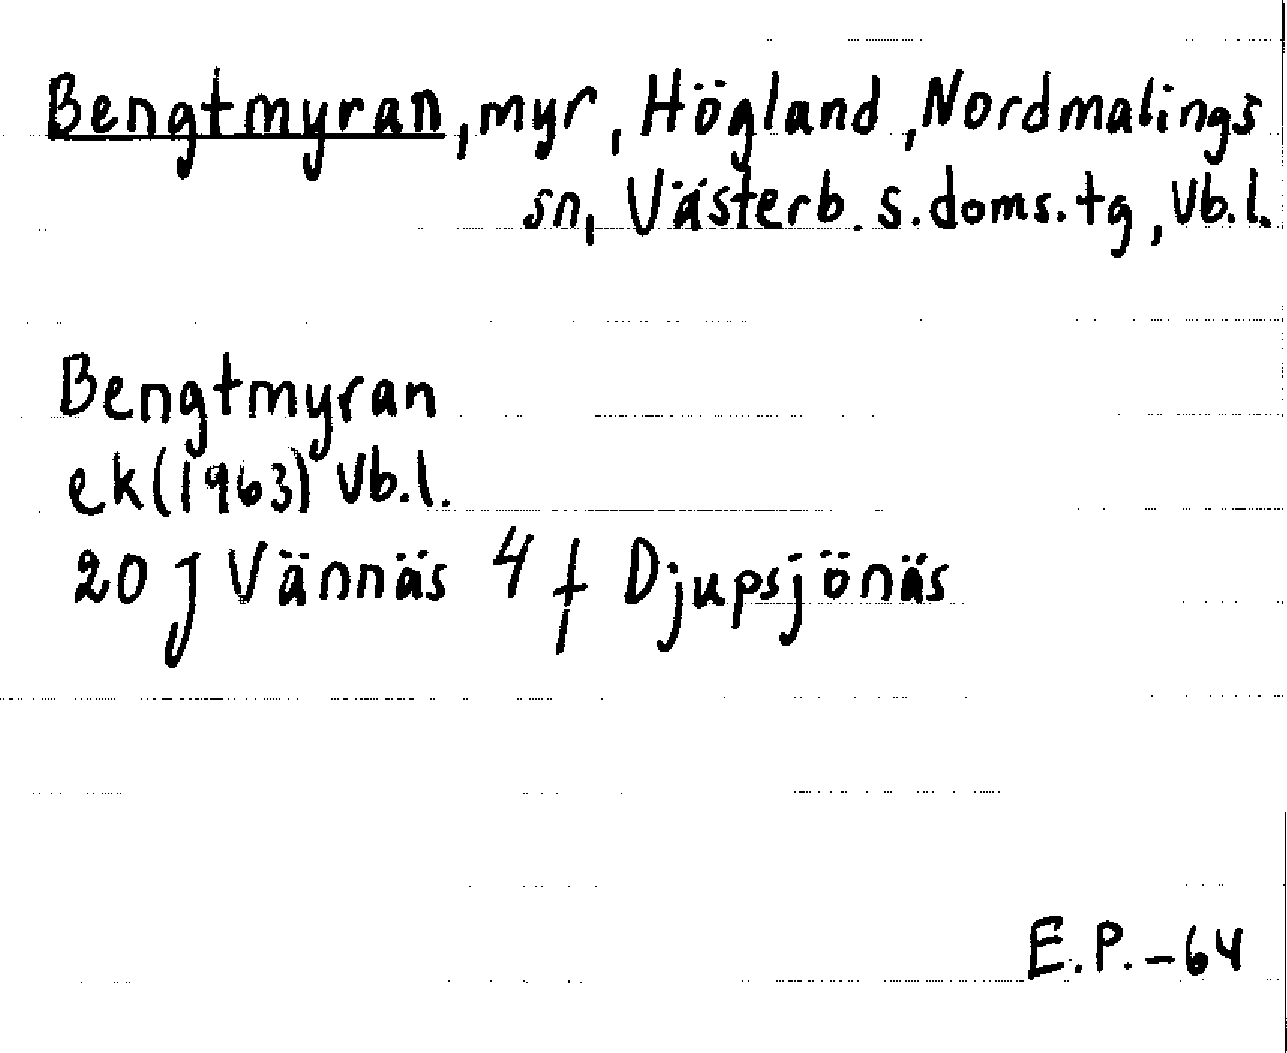 Bengtmyran, myr, Högland, Nordmalings
sn, Västerb. s. doms. tg, Vb.l.
Bengtmyran
ek (1963) Vb.l.
20 J Vännäs 4 f Djupsjönäs
E.P. -64